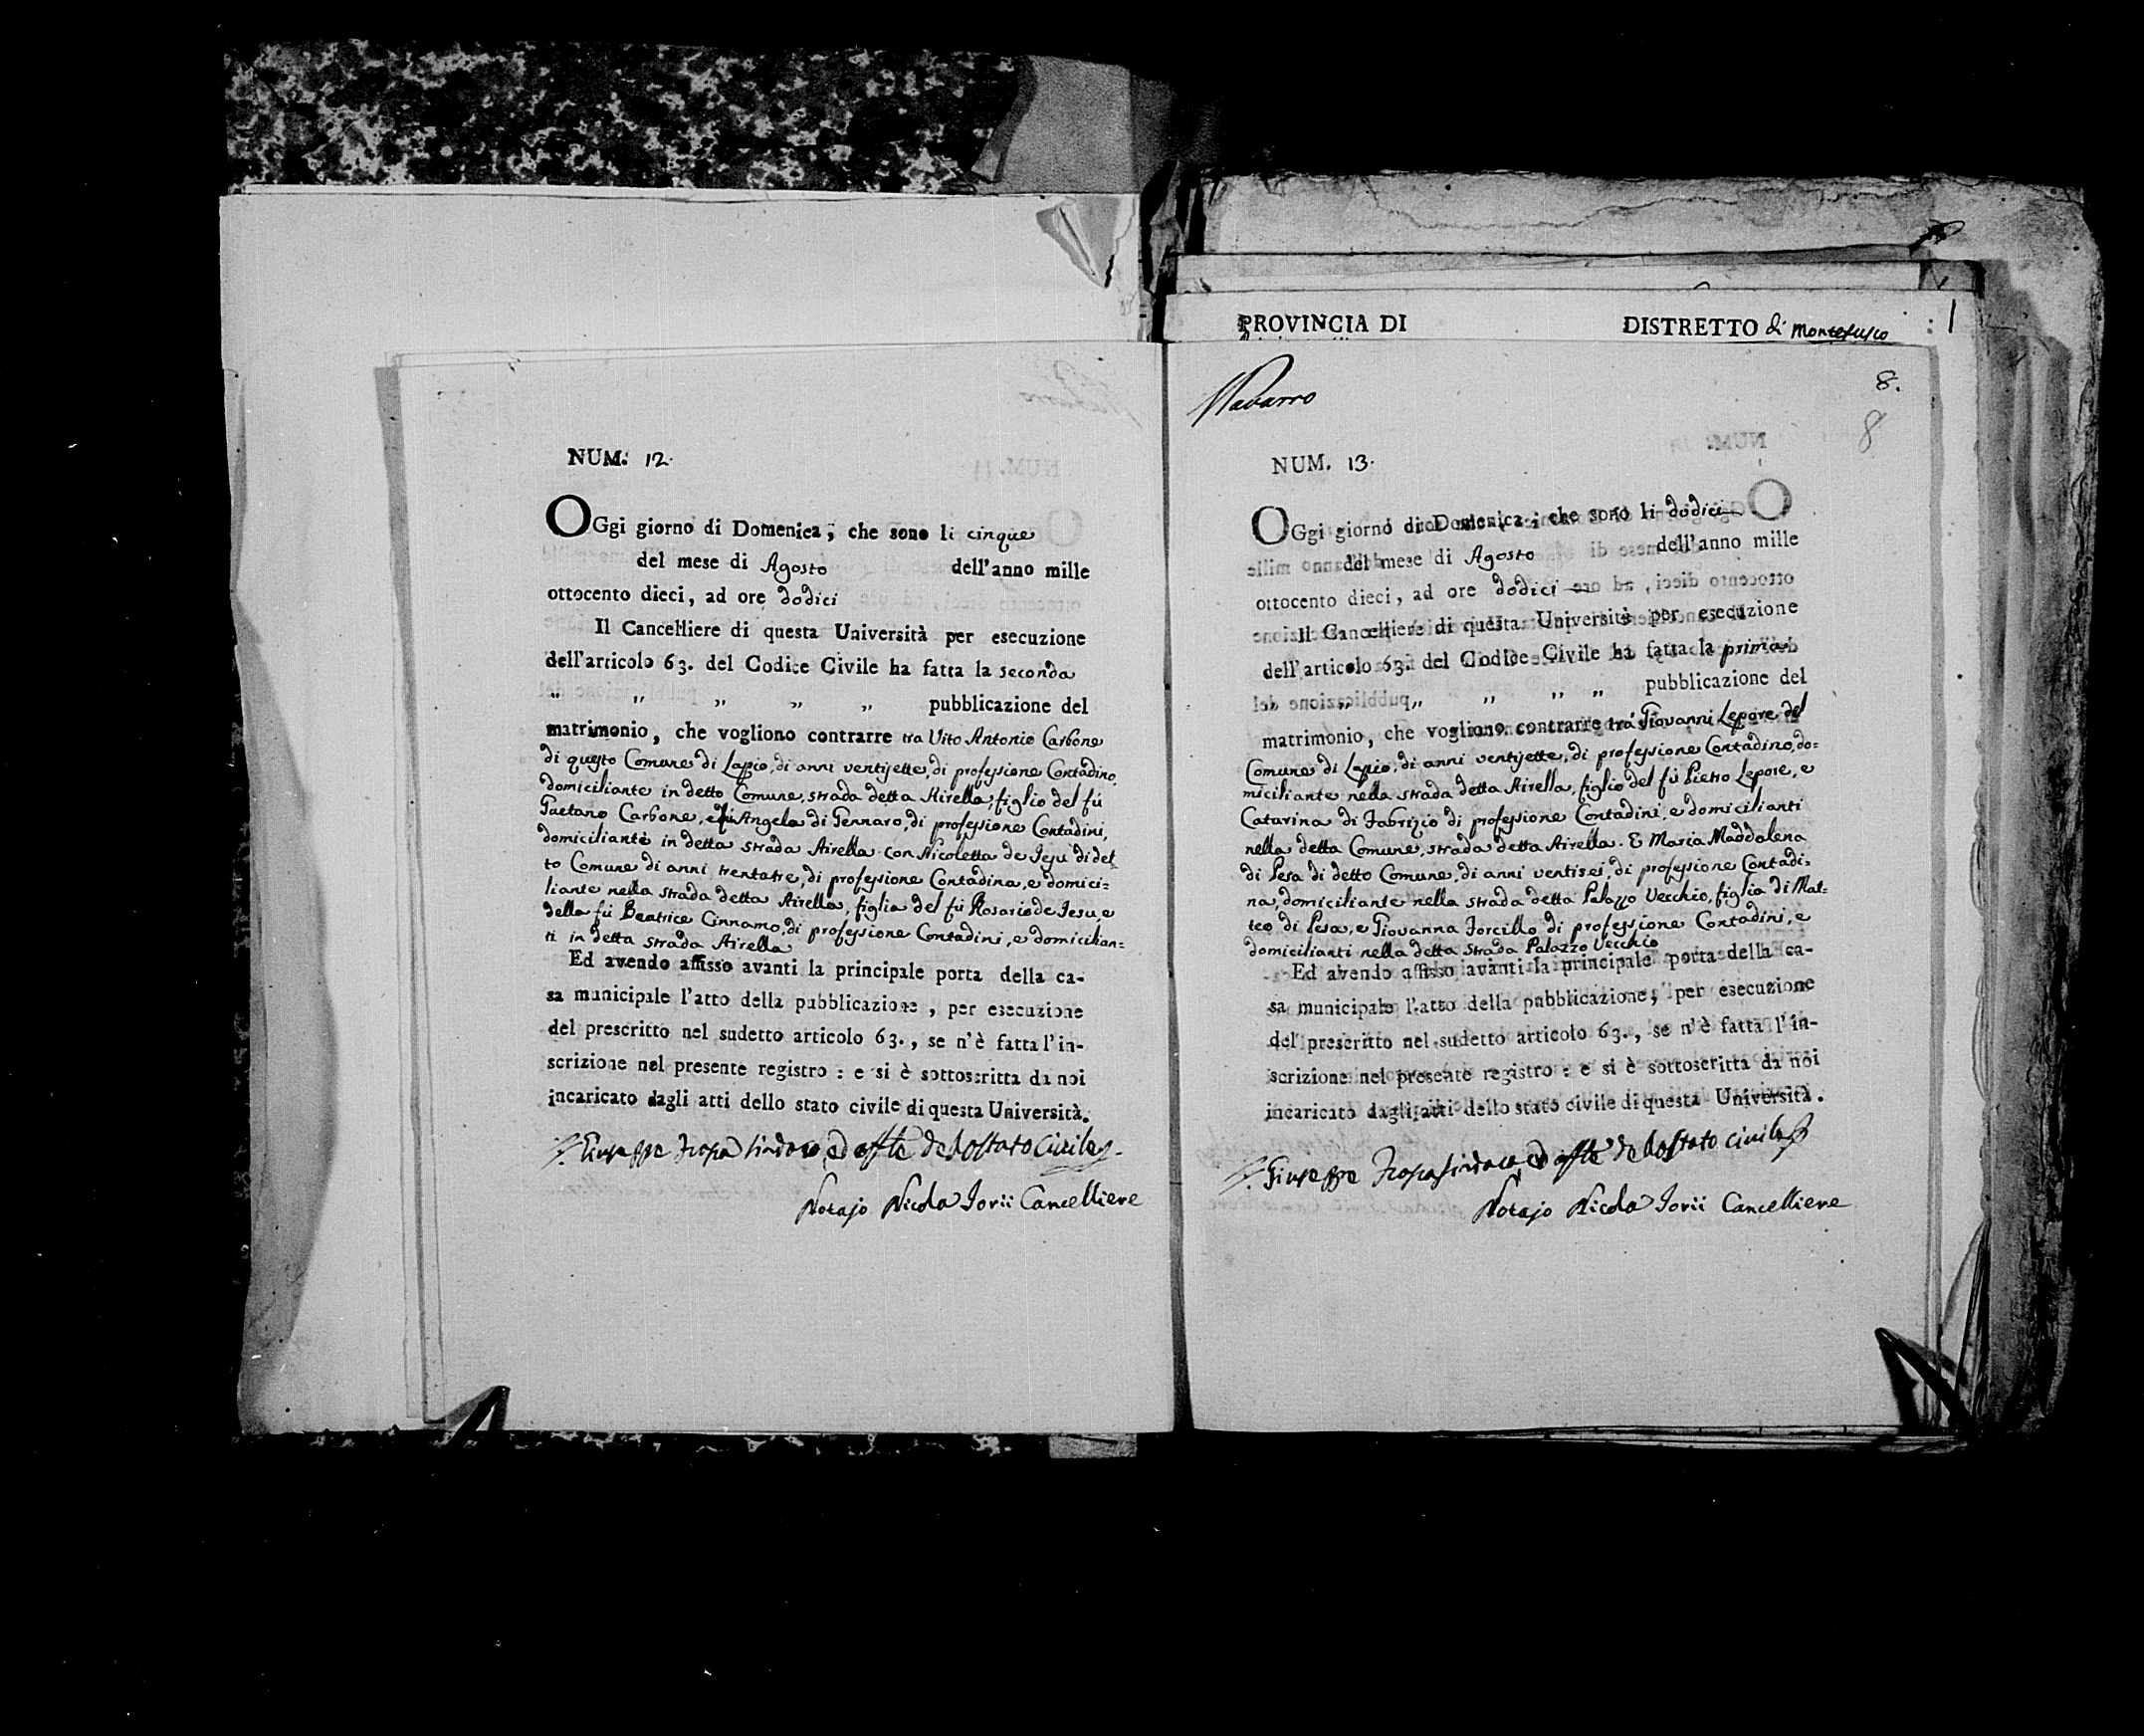 NUM. 12.
OGgi giorno di Domenica, che sono li cinque
del mese di Agosto dell'anno mille
ottocento dieci, ad ore dodici
Il Cancelliere di questa Università per esecuzione
dell'articolo 63. del Codice Civile ha fatta la seconda
" " " " " pubblicazione del
matrimonio, che vogliono contrarre tra Vito Antonio Carbone
di questo Comune di Lapio, di anni ventisette, di professione Contadino,
domiciliante in detto Comune, strada detta Airella, figlio del fù
Gaetano Carbone, e di Angela di Gennaro, di professione Contadini,
domicilianti in detta strada Airella con Nicoletta de Jesu di det
to Comune di anni trentatre, di professione Contadina, e domici=
liante nella strada detta Airella, figlia del fù Rosario de Jesu, e
della fù Beatrice Cinnamo, di professione Contadini, e domicilian=
ti in detta strada Airella
Ed avendo affisso avanti la principale porta della ca-
sa municipale l'atto della pubblicazione, per esecuzione
del prescritto nel sudetto articolo 63., se n'è fatta l'in-
scrizione nel presente registro : e si è sottoscritta da noi
incaricato dagli atti dello stato civile di questa Università.
Giuseppe Tropa Sindaco, ed offle dello stato civile
Notajo Nicola Jorii Cancelliere
PROVINCIA DI DISTRETTO di Montefusco 1
Navarro 8.
8
NUM. 13.
OGgi giorno di Domenica, che sono li dodici
del mese di Agosto dell'anno mille
ottocento dieci, ad ore dodici
Il Cancelliere di questa Università per esecuzione
dell'articolo 63. del Codice Civile ha fatta la prima
" " " " " pubblicazione del
matrimonio, che vogliono contrarre trà Giovanni Lepore del
Comune di Lapio, di anni ventisette, di professione Contadino, do=
miciliante nella strada detta Airella, figlio del fù Pietro Lepore, e
Catarina di Fabrizio di professione Contadini, e domicilianti
nella detta Comune, strada detta Airella. E Maria Maddalena
di Pesa di detto Comune, di anni ventisei, di professione Contadi=
na, domiciliante nella strada detta Palazzo Vecchio, figlia di Mat=
teo di Pesa, e Giovanna Forcillo di professione Contadini, e
domicilianti nella detta strada Palazzo Vecchio
Ed avendo affisso avanti la principale porta della ca-
sa municipale l'atto della pubblicazione, per esecuzione
del prescritto nel sudetto articolo 63., se n'è fatta l'in-
scrizione nel presente registro : e si è sottoscritta da noi
incaricato dagli atti dello stato civile di questa Università.
Giuseppe Tropa Sindaco, ed offle dello stato civile
Notajo Nicola Jorii Cancelliere